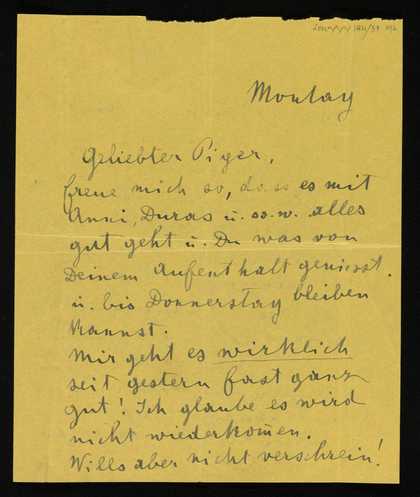 Montag
Geliebter Piger,
freue mich so, dass es mit
Anni, Duras u. s. w. alles
gut geht u. Du was von
Deinem Aufenthalt geniesst.
u. bis Donnerstag bleiben
kannst.
Mir geht es wirklich
seit gestern fast ganz
gut! Ich glaube es wird
nicht wiederkom̅en.
Wills aber nicht verschrein!